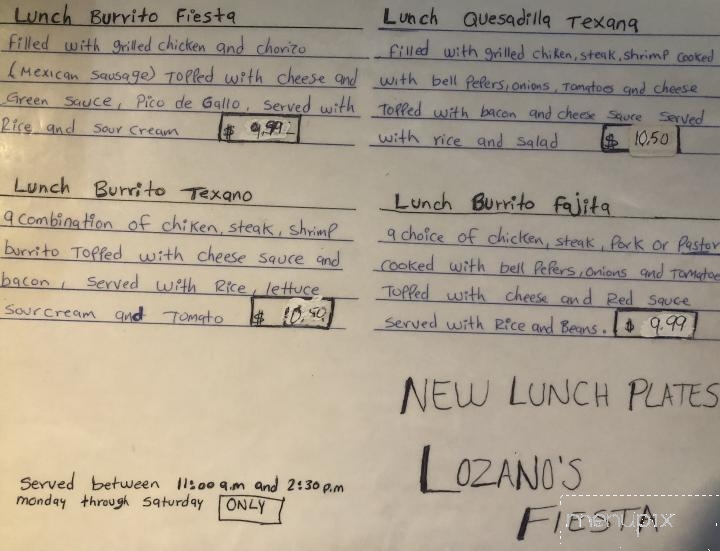 Lunch Burrito Fiesta
filled with grilled chicken and chorizo
(Mexican Sausage) Topped with cheese and
Green Sauce, Pico de Gallo. Served with
Rice and Sour Cream $ 9.99
Lunch Quesadilla Texana
filled with grilled chiken, steak, shrimp cooked
with bell Pepers, onions, Tomatoes and cheese
Topped with bacon and cheese sauce served
with rice and salad $ 10.50
Lunch Burrito Texano
a combination of chiken, steak, shrimp
burrito Topped with cheese sauce and
bacon, Served with Rice, lettuce
sour cream and Tomato $ 10.50
Lunch Burrito Fajita
a choice of chicken, steak, Pork or Pastor
cooked with bell Pepers, onions and Tomatoe
Topped with cheese and Red Sauce
served with Rice and Beans. $ 9.99
NEW LUNCH PLATES
LOZANO'S
FIESTA
Served between 11:00 a.m and 2:30 p.m
monday through Saturday ONLY
menupix